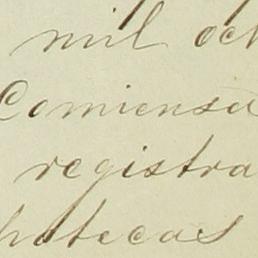 mil och
Comiensa
registra
potecas